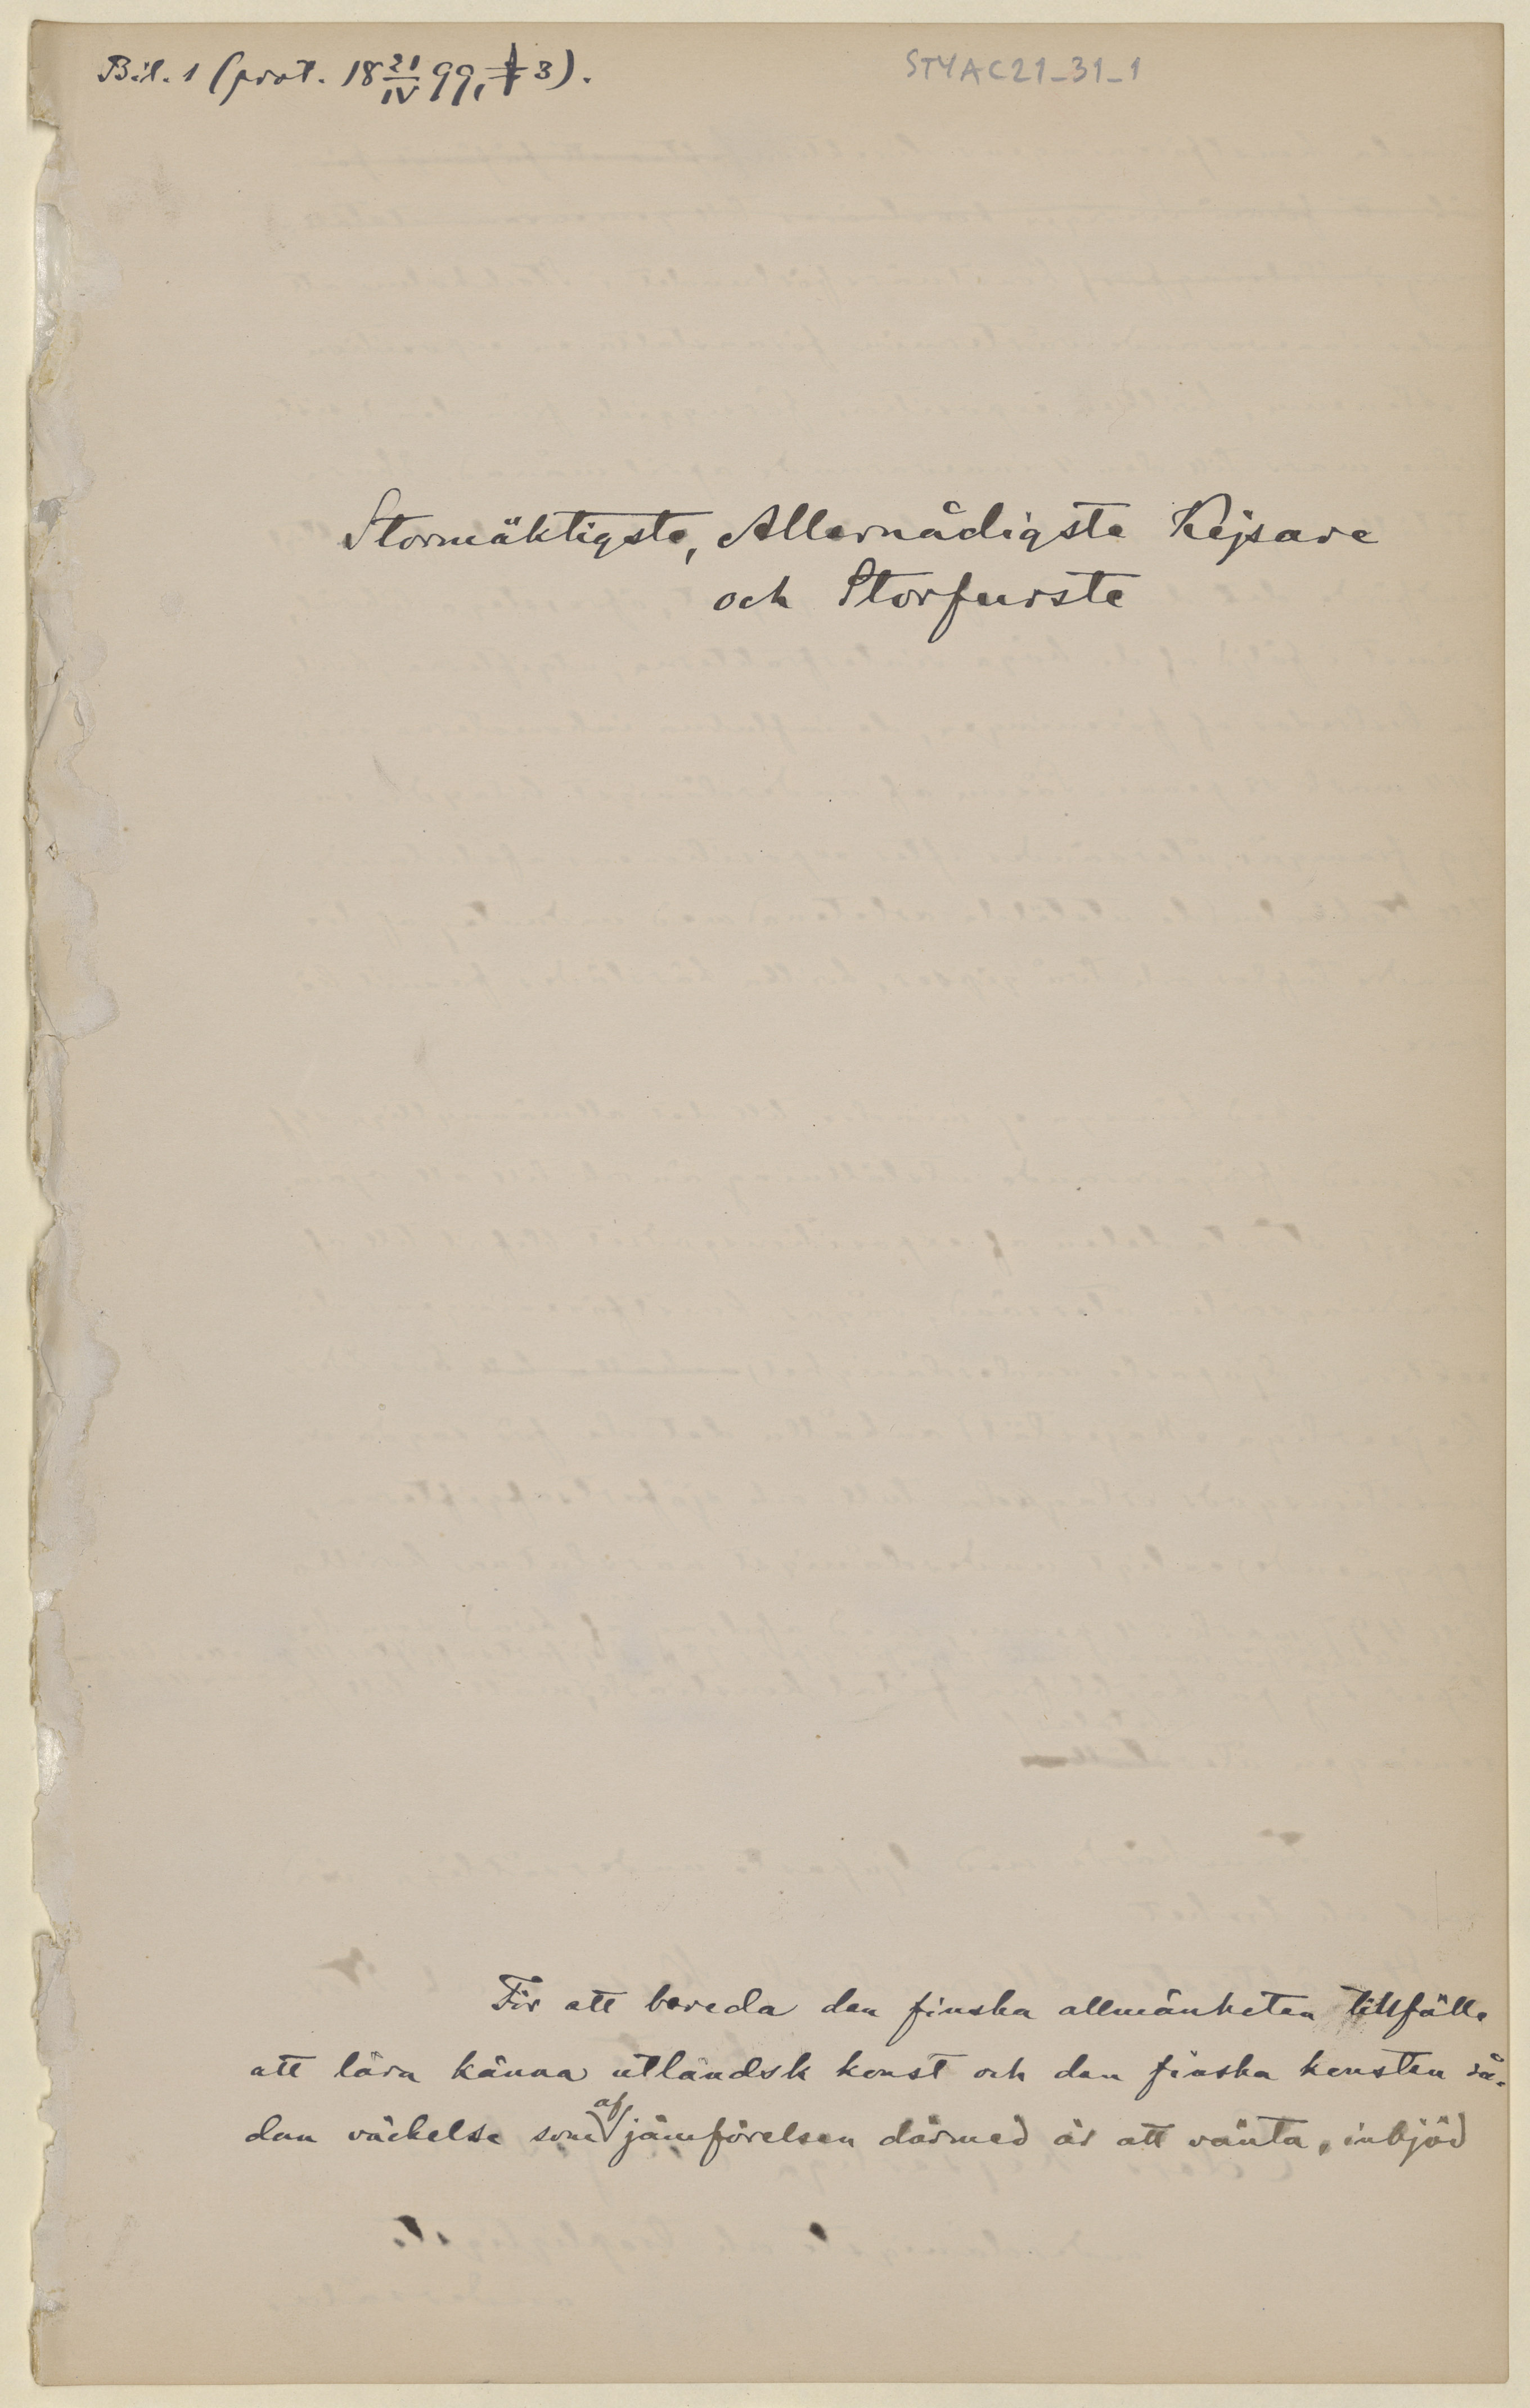 Bil. 1 (prot. 18 21/IV 99, § 3).
STYAC21_31_1
Stormäktigste, Allernådigste Kejsare
och Storfurste
För att bereda den finska allmänheten tillfälle
att lära känna utländsk konst och den finska konsten så-
dan väckelse som af jämförelsen därmed är att vänta, inbjöd